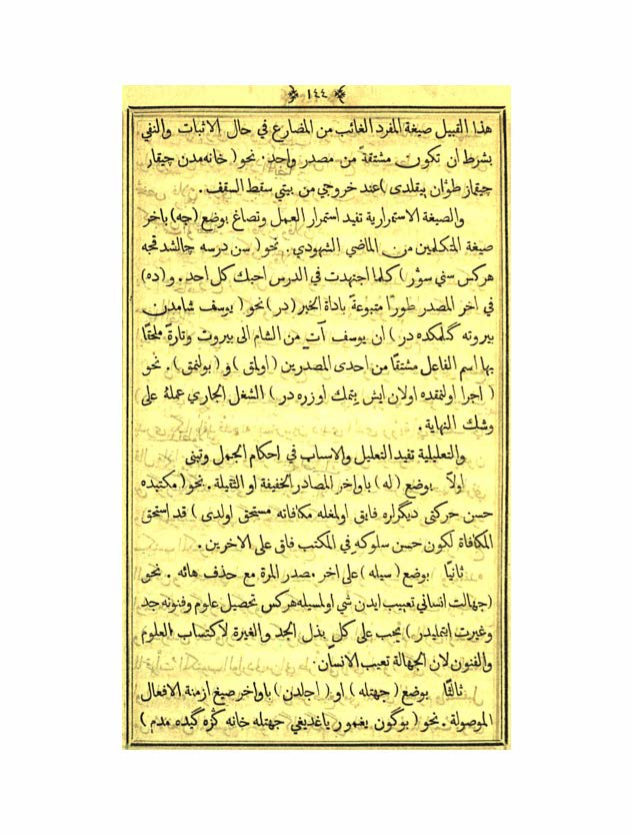 ١٤٤
هذا القبيل صيغة المفرد الغائب من المضارع في حال الاثبات والنفي
بشرط ان تكون مشتقة من مصدر واحد. نحو ( خانه‌مدن چيقار
چيقماز طوان ييقلدى ) عند خروجي من بيتي سقط السقف .
والصيغة الاستمرارية تفيد استمرار العمل وتصاغ بوضع (جه) باخر
صيغة المتكلمين من الماضي الشهودي . نحو ( سن درسه چالشدقجه
هركس سني سور ) كلما اجتهدت في الدرس احبك كل احد . و (ده)
في اخر المصدر طورًا متبوعةً باداة الخبر (در) نحو ( يوسف شامدن
بيروته گلمكده در ) ان يوسف آتٍ من الشام الى بيروت وتارةً ملحقًا
بها اسم الفاعل مشتقًا من احدى المصدرين ( اولمق ) و ( بولنمق ) . نحو
( اجرا اولنمقده اولان ايش بتمك اوزره در ) الشغل الجاري عملهُ على
وشك النهاية .
والتعليلية تفيد التعليل والاسباب في احكام الجمل وتبنى
اولاً بوضع ( له ) باواخر المصادر الخفيفة او الثقيلة . نحو ( مكتبده
حسن حركتى ديگرلره فايق اولمغله مكافاته مستحق اولدى ) قد استحق
المكافاة لكون حسن سلوكهِ في المكتب فاق على الاخرين .
ثانيًا بوضع ( سيله ) على اخر مصدر المرة مع حذف هائه . نحو
( جهالت انسانى تعييب ايدن شى اولمسيله هركس تحصيل علوم وفنونه جد
وغيرت ايتمليدر ) يجب على كل بذل الجد والغيرة لاكتساب العلوم
والفنون لان الجهالة تعيب الانسان .
ثالثًا بوضع ( جهتله ) او ( اجلدن ) باواخر صيغ ازمنة الافعال
الموصولة . نحو ( بوگون يغمور ياغديغى جهتله خانه گزه گيده مدم )